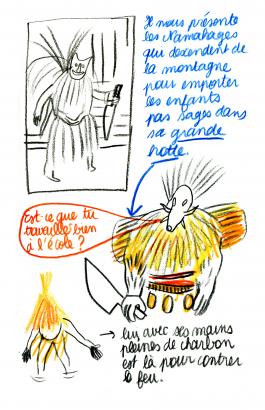 Il nous présente
les Namahages
qui descendent de
la montagne
pour emporter
les enfants
pas sages dans
sa grande
hotte.
Est-ce que tu
travailles bien
à l'école ?
→ lui avec ses mains
pleines de charbon
est là pour contrer
le feu.